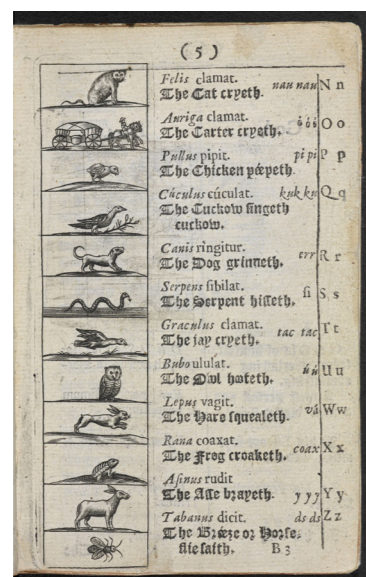 (5)
Felis clamat. nau nau N n
The Cat cryeth.
Auriga clamat. ó ó ó O o
The Carter cryeth.
Pullus pipit. pi pi P p
The Chicken peepeth.
Cúculus cúculat. kuk ku Q q
The Cuckow singeth
cuckow.
Canis ringitur. err R r
The Dog grinneth.
Serpens sibilat. si S s
The Serpent hisseth.
Graculus clamat. tac tac T t
The jay cryeth.
Bubo ululat. ú ú U u
The Owl hooteth.
Lepus vagit. vá W w
The Hare squealeth.
Rana coaxat. coax X x
The Frog croaketh.
Asinus rudit y y y Y y
The Asse brayeth.
Tabanus dicit. ds ds Z z
The Breeze or Horse-
flie saith. B 3